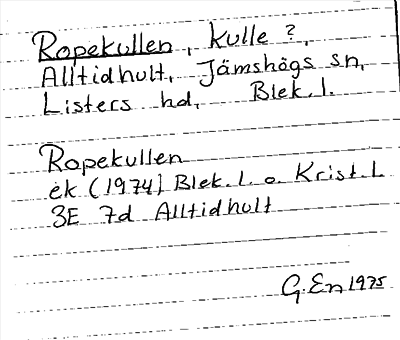 Ropekullen, kulle ?,
Alltidhult, Jämshögs sn,
Listers hd, Blek. l.
Ropekullen
ek (1974) Blek. l. o. Krist. L
3E 7d Alltidhult
G. En 1975